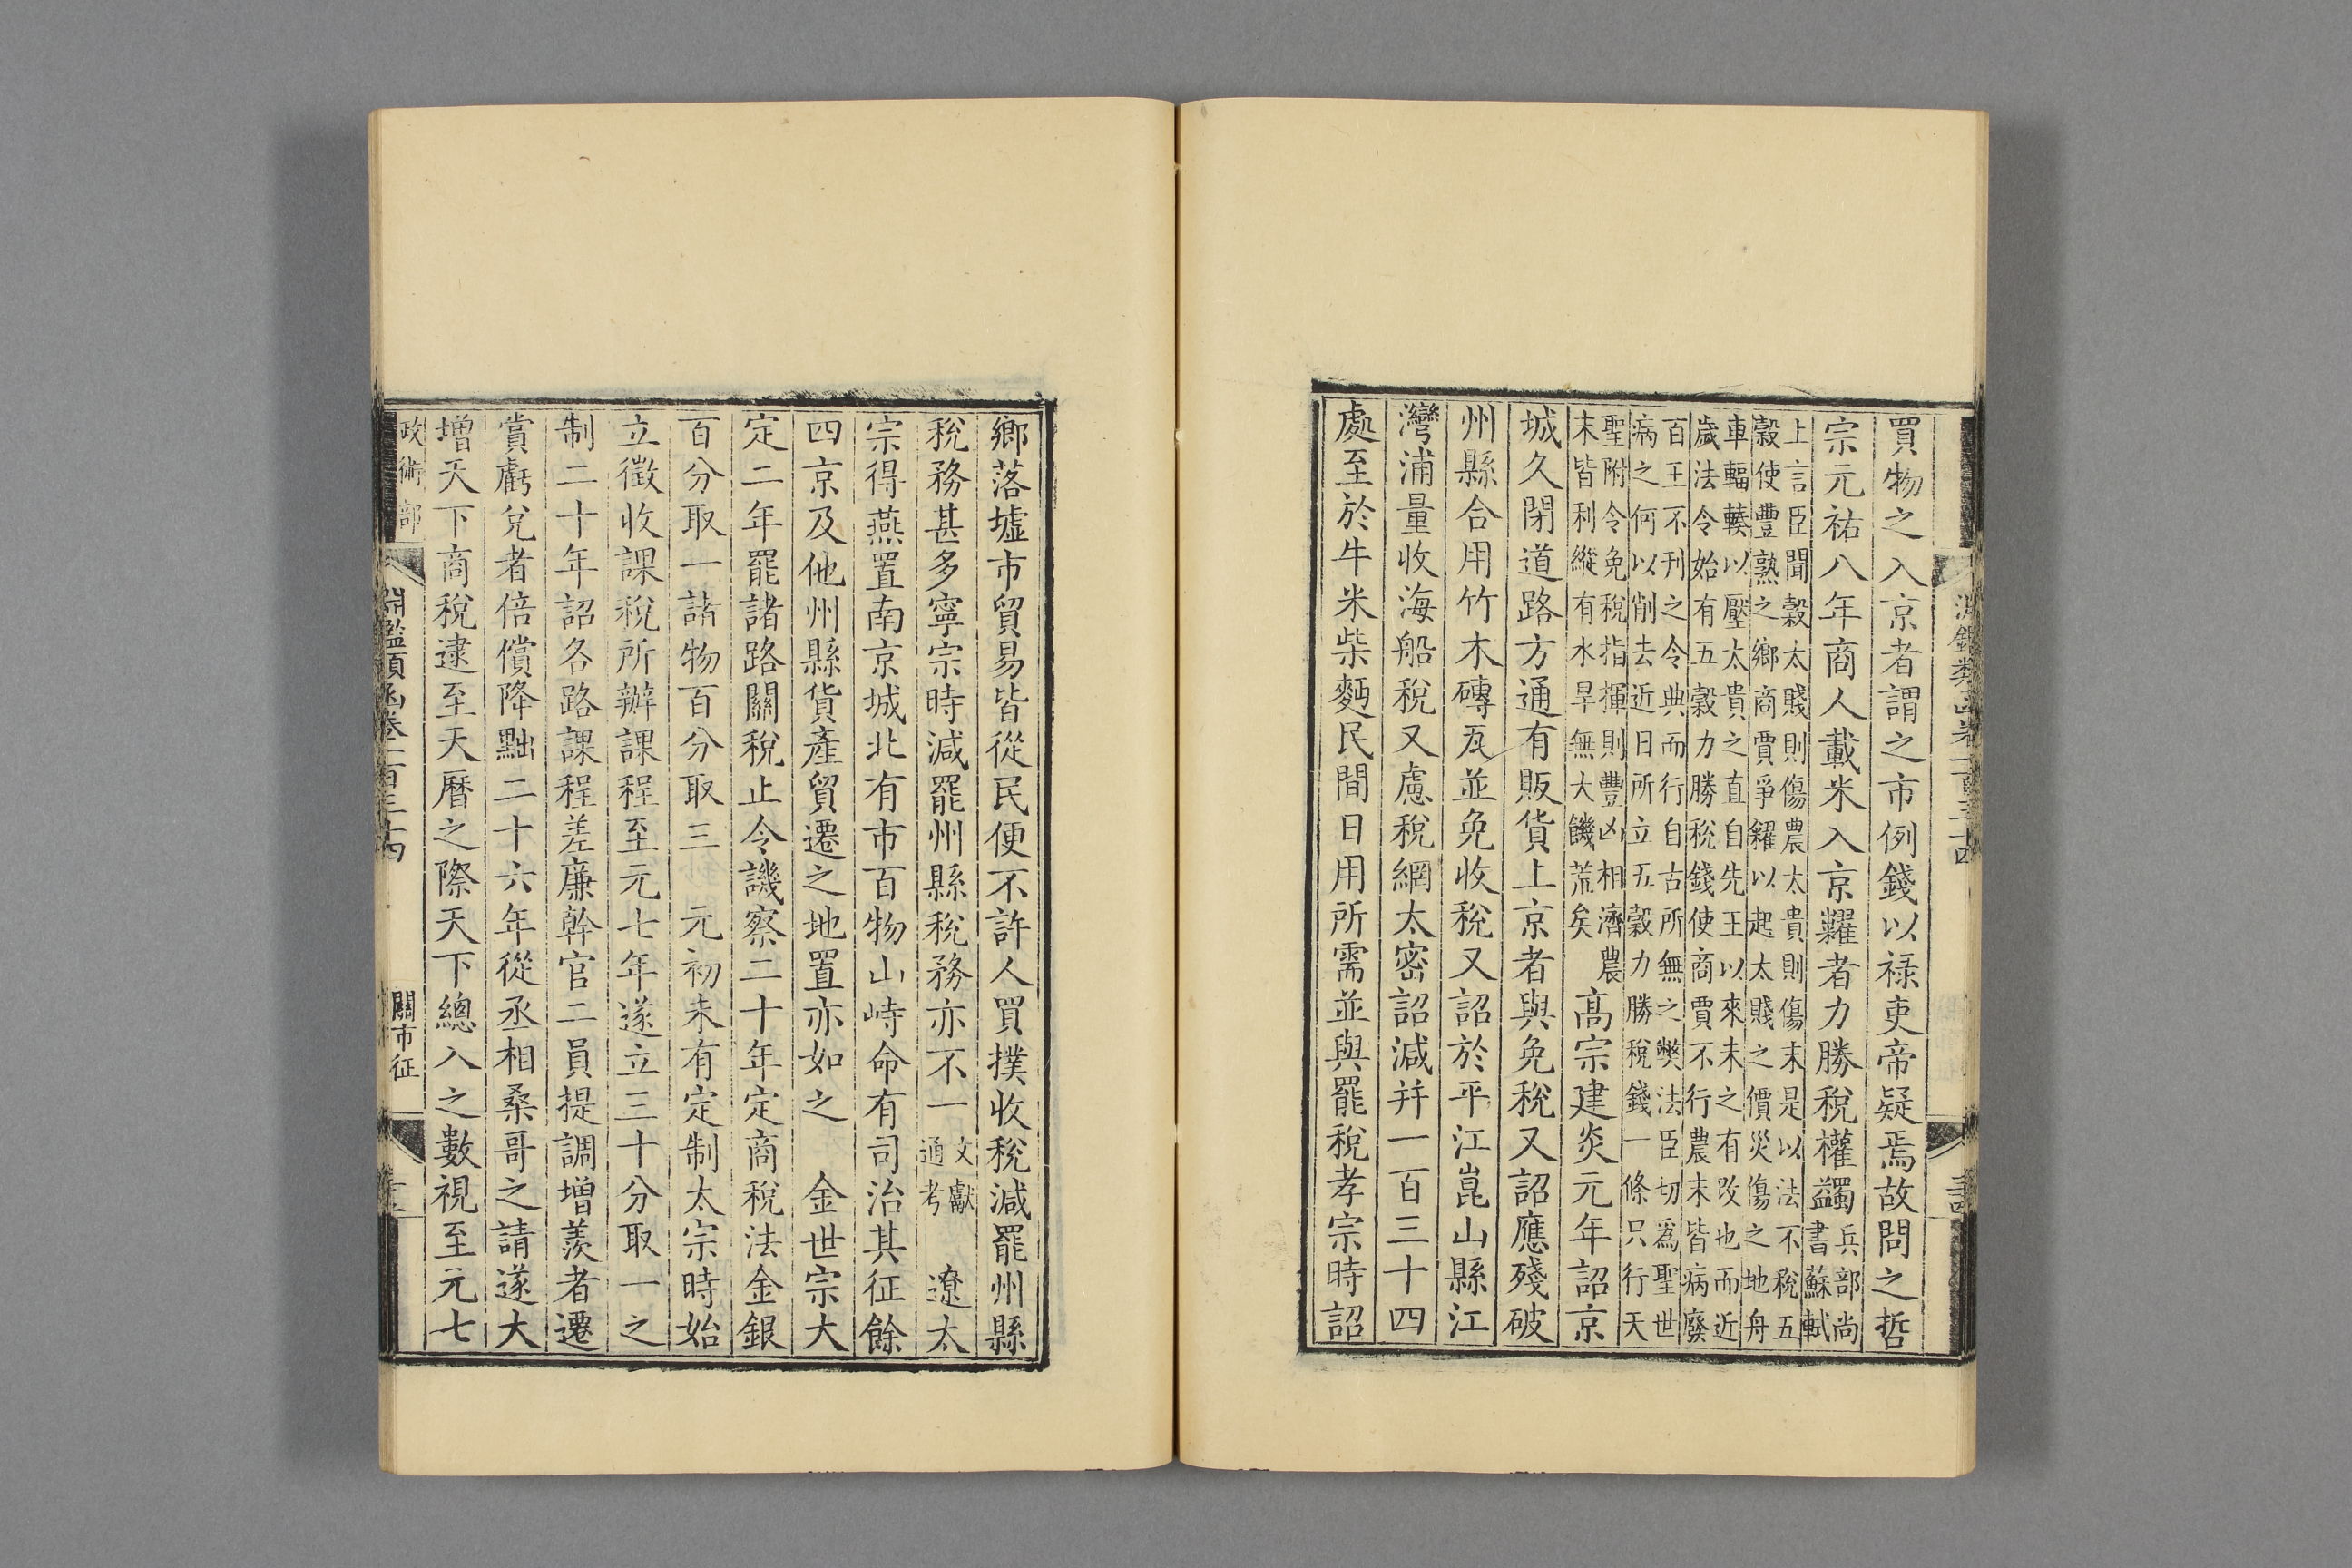 買物之入京者謂之市例錢以祿吏帝疑焉故問之哲
宗元祐八年商人載米入京糶者力勝稅權蠲兵部尚
書蘇軾
上言臣聞穀太賤則傷農太貴則傷末是以法不稅五
穀使豐熟之鄉商賈爭糴以起太賤之價災傷之地舟
車輻輳以壓太貴之直自先王以來未之有改也而近
歲法令始有五穀力勝稅錢使商賈不行農末皆病廢
百王不刊之令典而行自古所無之弊法臣切爲聖世
病之何以削去近日所立五穀力勝稅錢一條只行天
聖附令免稅指揮則豐凶相濟農
末皆利縱有水旱無大饑荒矣
高宗建炎元年詔京
城久閉道路方通有販貨上京者與免稅又詔應殘破
州縣合用竹木磚瓦並免收稅又詔於平江崑山縣江
灣浦量收海船稅又慮稅網太密詔減并一百三十四
處至於牛米柴麪民間日用所需並與罷稅孝宗時詔
鄉落墟市貿易皆從民便不許人買撲收稅減罷州縣
稅務甚多寧宗時減罷州縣稅務亦不一文獻
通考
遼太
宗得燕置南京城北有市百物山峙命有司治其征餘
四京及他州縣貨產貿遷之地置亦如之 金世宗大
定二年罷諸路關稅止令譏察二十年定商稅法金銀
百分取一諸物百分取三 元初未有定制太宗時始
立徵收課稅所辦課程至元七年遂立三十分取一之
制二十年詔各路課程差廉幹官二員提調增羨者遷
賞虧兌者倍償降黜二十六年從丞相桑哥之請遂大
增天下商稅逮至天曆之際天下總入之數視至元七
政術部
淵鑑類函卷一百三十四
關市征